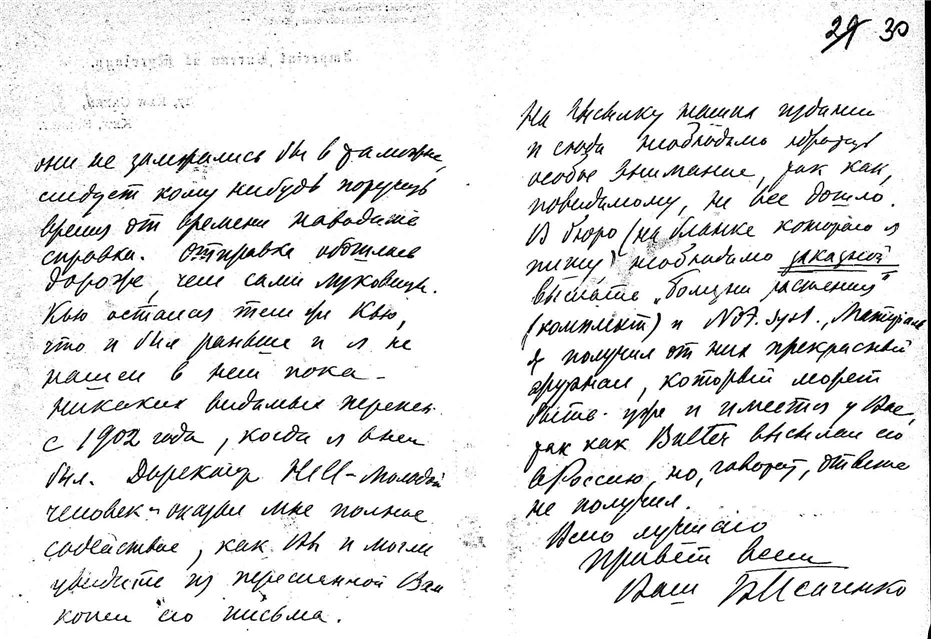 29 30
они не замерзлись бы в таможне,
следует кому нибудь поручить
время от времени наводить
справки. Отправка обошлась
дороже, чем сами луковицы.
Кью остался тем же Кью,
что и был раньше и я не
нашел в нем пока
никаких видимых перемен
с 1902 года, когда я в нем
был. Директор Hill – молодой
человек – оказал мне полное
содействие, как Вы и могли
увидеть из пересланной Вам
копии его письма.
На высылку наших изданий
и сюда необходимо обратить
особое внимание, так как,
повидимому, не все дошло.
В бюро (на бланке которого я
пишу) необходимо заказной
выслать „Болезни растений"
(комплект) и Not. syst., Материалы
Я получил от них прекрасный
журнал, который может
быть уже и имеется у Вас,
так как Butler высылал его
в Россию, но, говорят, ответа
не получил.
Всего лучшего
Привет всем
Ваш БИсаченко